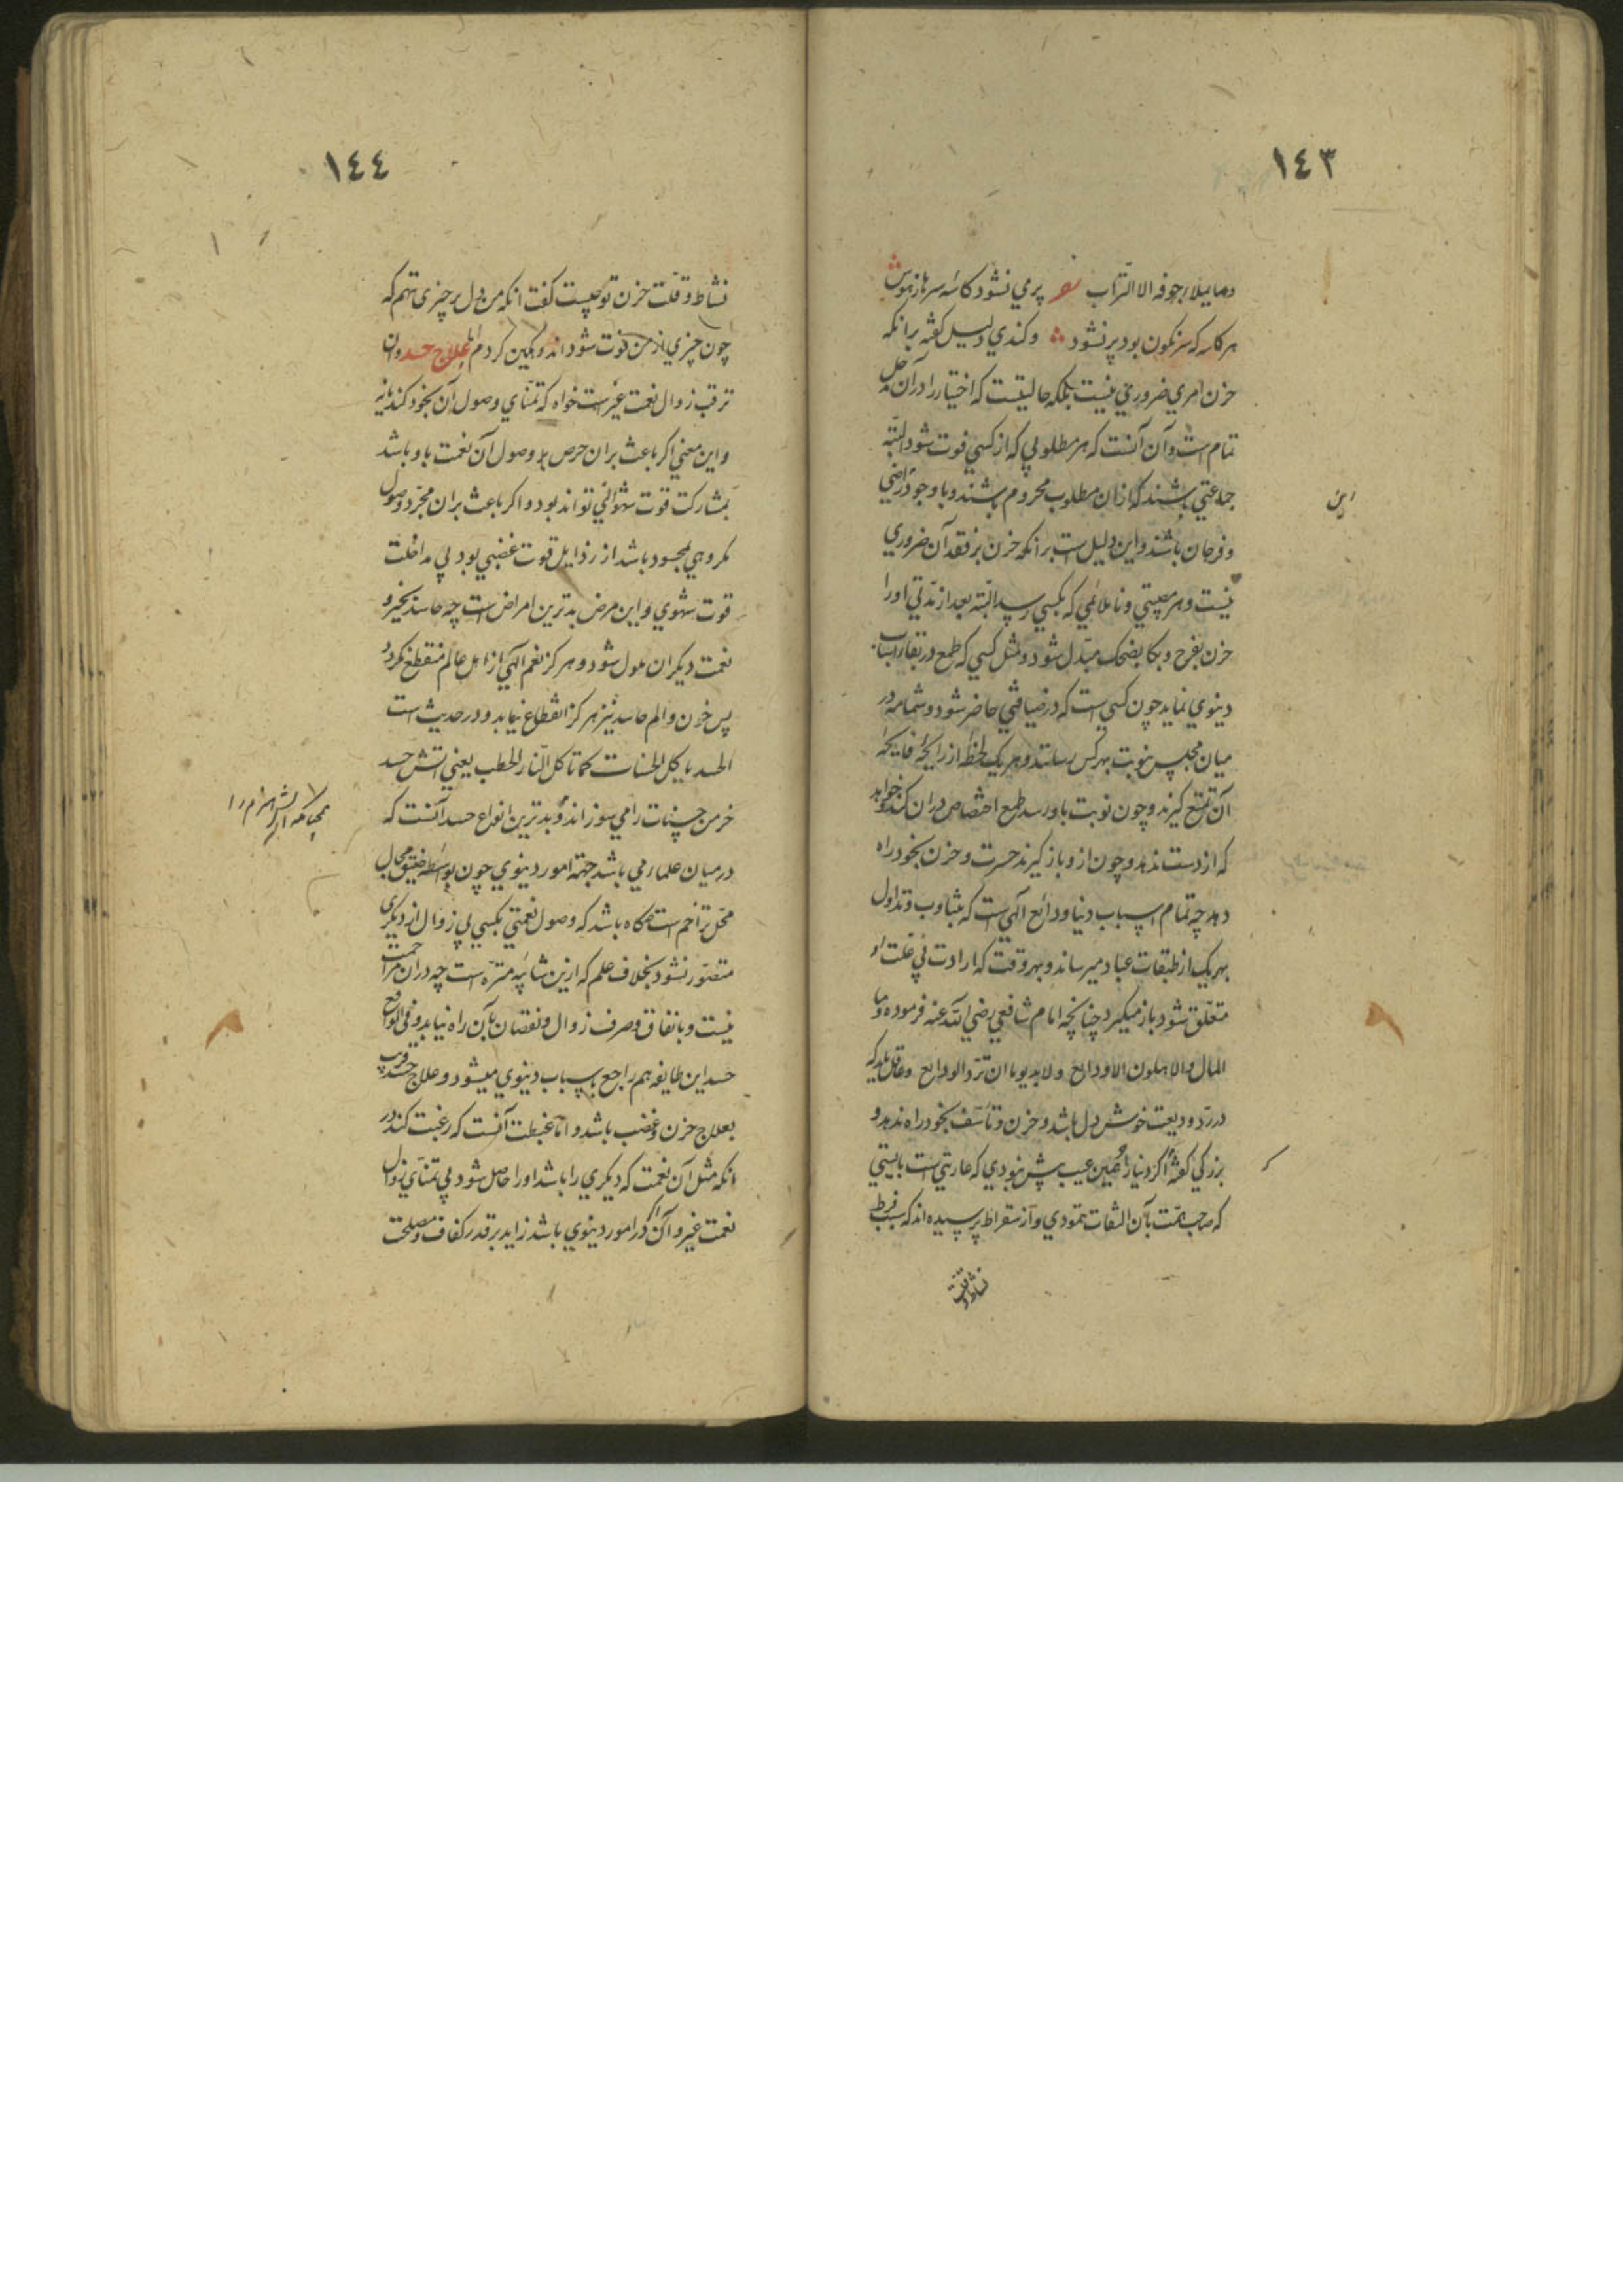 ١٤٣
وما یملاء جوفه الا التراب شعر پر می نشود کاسه سرها ز هوس
هر کاسه که سرنگون بود پر نشود وکندی دلیل گفته برانکه
حزن امری ضروری نیست بلکه حالتیست که اختیار را در آن مدخل
تمام است وآن آنست که هر مطلوبی که از کسی فوت شود البته
جماعتی باشند که ازان مطلوب محروم باشند وبا وجود راضی
وفرحان باشند واین دلیل است برانکه حزن بر فقد آن ضروری
نیست وهر مصیبتی وناملائمی که بکسی رسد البته بعد از مدتی اورا
حزن بفرح وبکا بضحک مبدل شود ومثل کسی که طمع در بقاء اسباب
دنیوی نماید چون کسی است که در ضیافتی حاضر شود وشمامه در
میان مجلس بنوبت بهر کس رسانند وهر یک لحظه از رایحه فایحه
آن تمتع گیرند وچون نوبت باو رسد طمع اختصاص دران کند وخواهد
که از دست ندهد وچون ازو باز گیرند حسرت وحزن بخود راه
دهد چه تمام اسباب دنیا ودائع الهی است که بتناوب وتداول
بهر یک از طبقات عباد میرساند وبهر وقت که ارادت بی علت او
متعلق شود باز میگیرد چنانچه امام شافعی رضی الله عنه فرموده وما
المال والاهلون الا ودایع ولابد یوما ان ترد الودایع وعاقل باید که
در رد ودیعت خوش دل باشد وحزن وتأسف بخود راه ندهد و
بزرگی گفته اگر دنیا را همین عیب پیش نبودی که عاریتی است بایستی
که صاحب همت بآن التفات ننمودی واز سقراط پرسیده اند که سبب فرط
نشاط وقلت
این
١٤٤
نشاط وقلت حزن تو چیست گفت انکه من دل بر چیزی ننهم که
چون چیزی از من فوت شود اندوهگین گردم اما علاج حسد وان
ترقب زوال نعمت غیر است خواه که تمنای وصول آن بخود کند یا نه
واین معنی اگر باعث بران حرص بر وصول آن نعمت باو باشد
بمشارکت قوت شهوانی تواند بود واگر باعث بران مجرد وصول
مکروهی بمحسود باشد از رذایل قوت غضبی بود بی مداخلت
قوت شهوی واین مرض بدترین امراض است چه حاسد بخیر و
نعمت دیگران ملول شود وهرگز نعم الهی از اهل عالم منقطع نگردد
پس حزن والم حاسد نیز هرگز انقطاع نیابد ودر حدیث است
الحسد یاکل الحسنات کما تاکل النار الحطب یعنی اتش حسد
خرمن حسنات را می سوزاند وبدترین انواع حسد آنست که
در میان علماء می باشد جهة امور دنیوی چون بواسطه ضیق مجال
محل تزاحم است گاه باشد که وصول نعمتی بکسی بی زوال از دیگری
متصور نشود بخلاف علم که ازین شائبه منزه است چه دران مزاحمت
نیست وبانفاق وصرف زوال ونقصان بآن راه نیابد وفی الواقع
حسد این طایفه هم راجع باسباب دنیوی میشود وعلاج حسد قریب
بعلاج حزن وغضب باشد واما غبطت آنست که رغبت کند در
انکه مثل آن نعمت که دیگری را باشد اورا حاصل شود بی تمنای زوال
نعمت غیر وآن اگر در امور دنیوی باشد زاید بر قدر کفاف ومصلحت